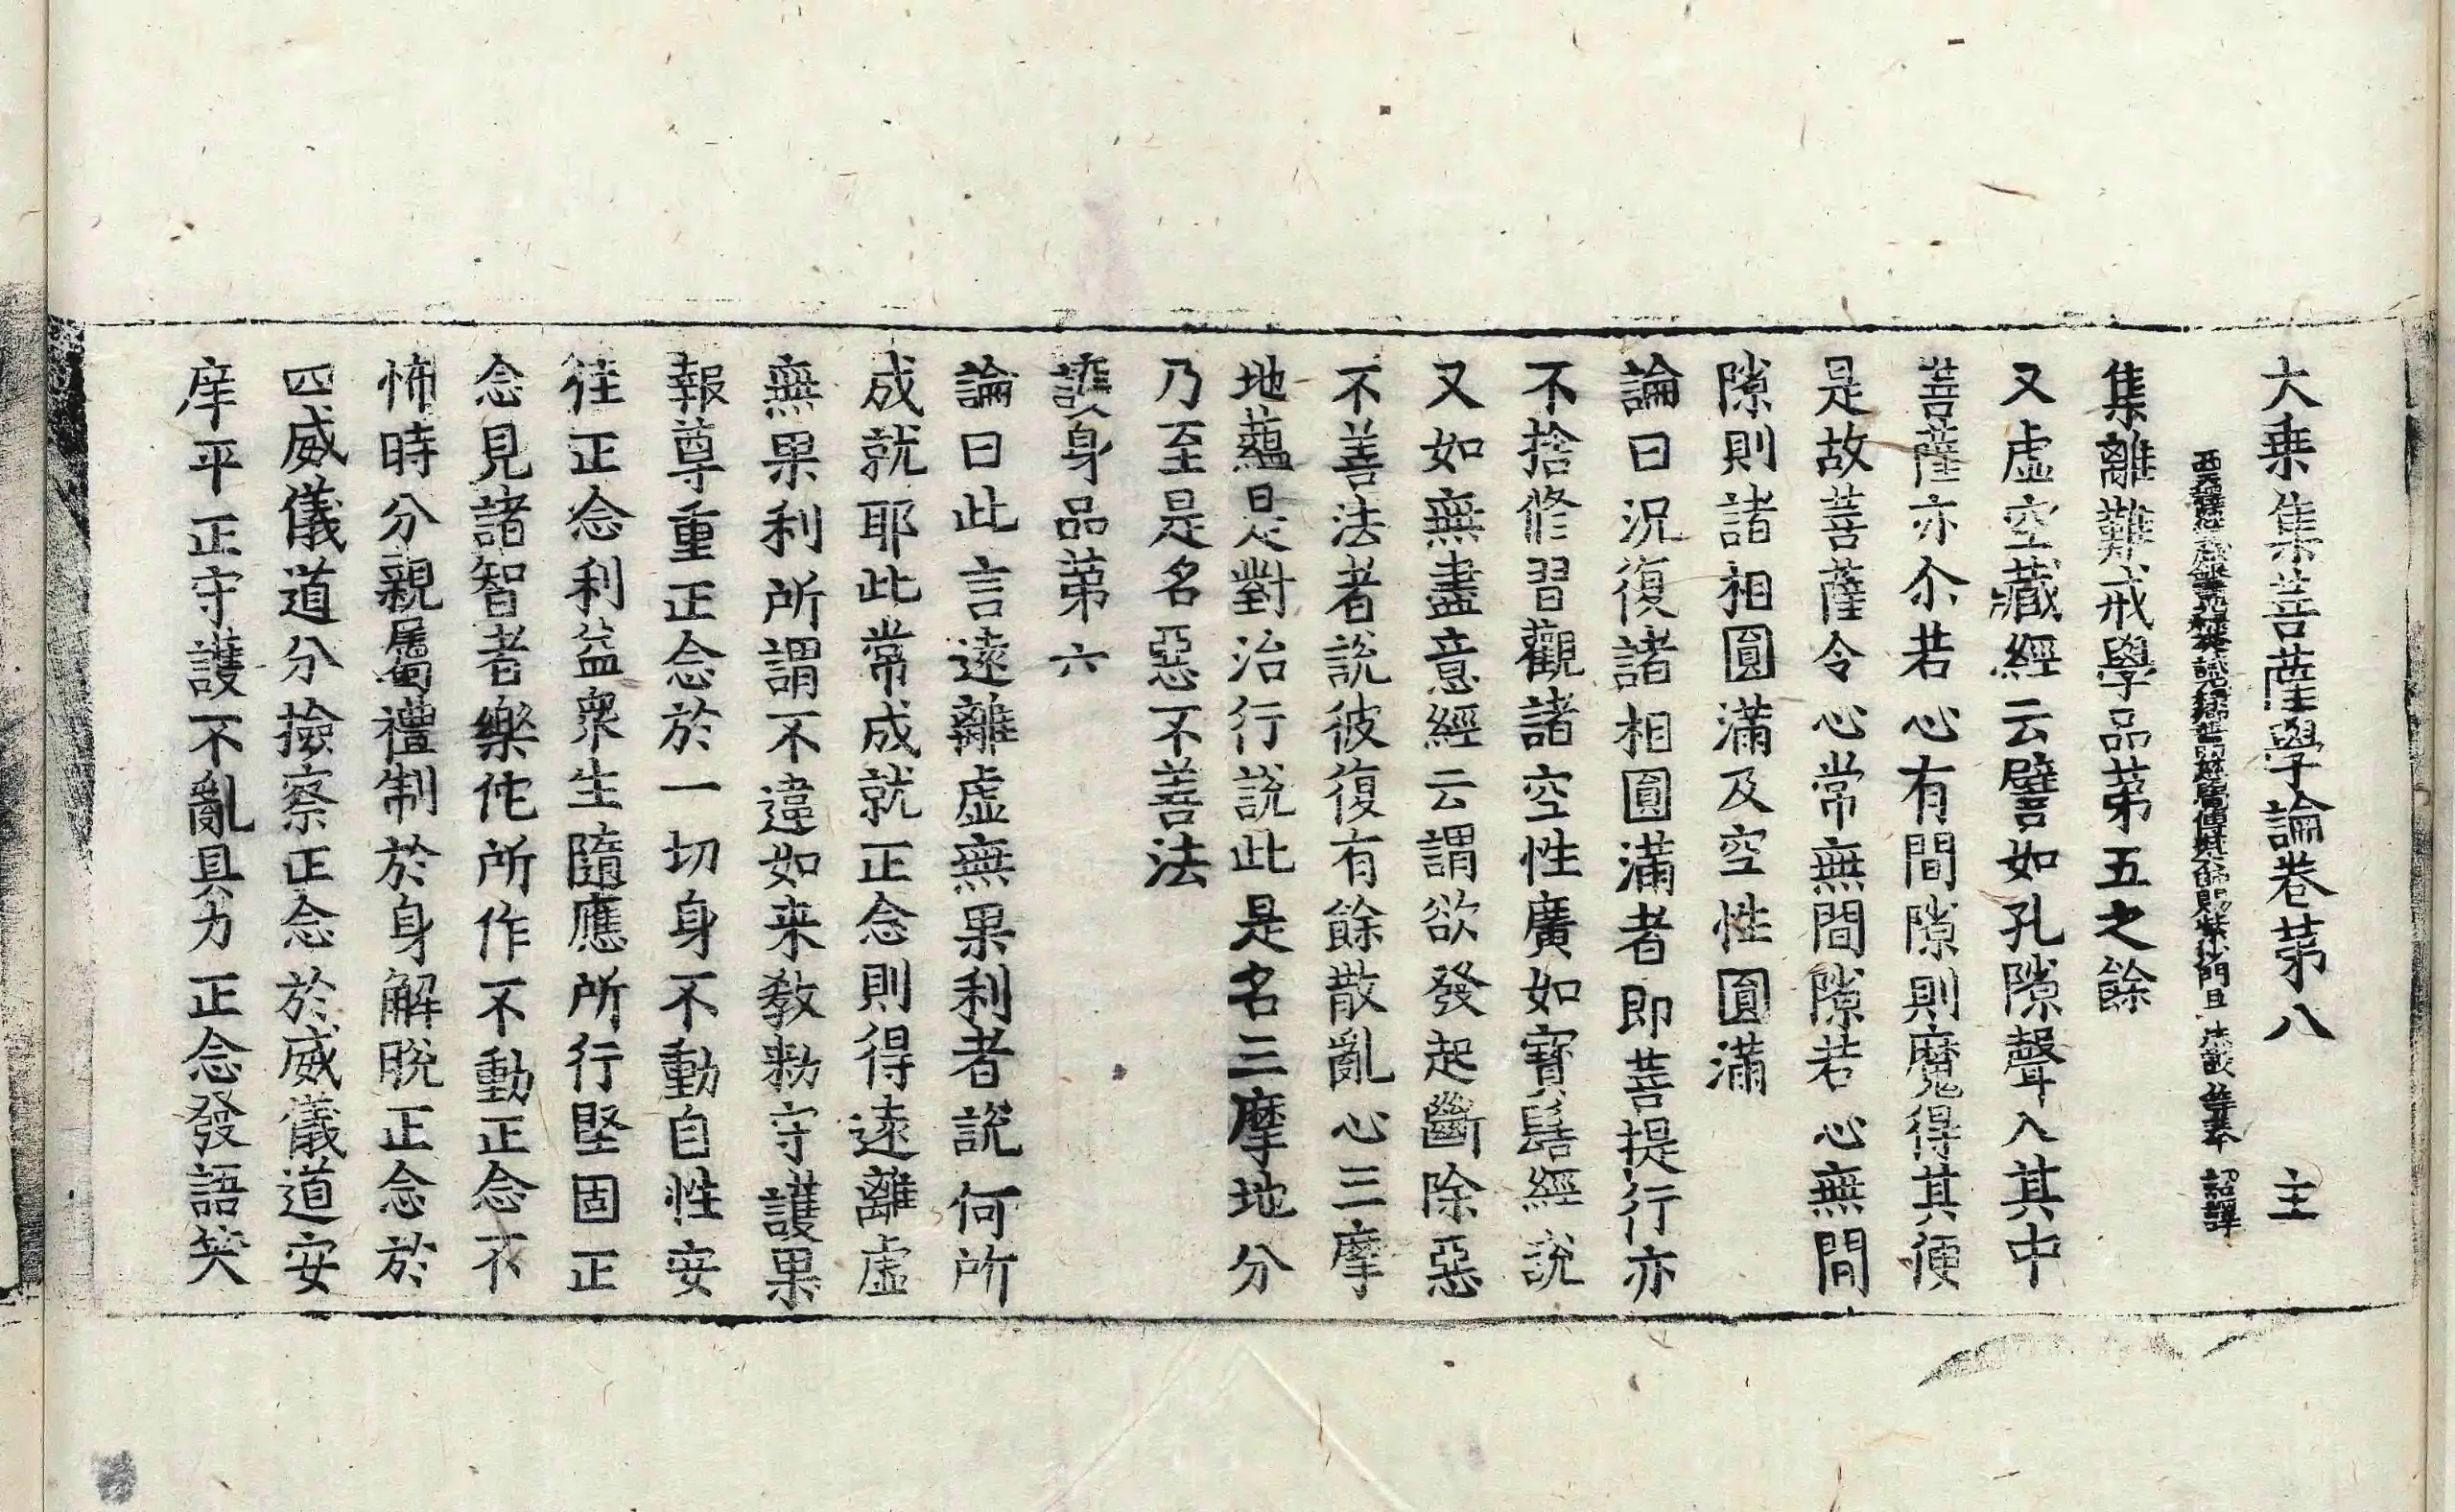 大乗集菩薩學論卷苐八 主
西天譯經三藏銀青光祿大夫試光祿卿普明慈覺傳梵大師賜紫沙門臣 法護 等奉 詔譯
集離難戒學品苐五之餘
又虛空藏經云譬如孔隙聲入其中
菩薩亦尒若心有間隙則魔得其便
是故菩薩令心常無間隙若心無間
隙則諸相圓滿及空性圓滿
論曰況復諸相圓滿者即菩提行亦
不捨修習觀諸空性廣如寶髻經說
又如無盡意經云謂欲發起斷除惡
不善法者說彼復有餘散亂心三摩
地蘊是對治行說此是名三摩地分
乃至是名惡不善法
護身品苐六
論曰此言遠離虛無果利者說何所
成就耶此常成就正念則得遠離虛
無果利所謂不違如来教勑守護果
報尊重正念於一切身不動自性安
徃正念利益衆生隨應所行堅固正
念見諸智者樂佗所作不動正念不
怖時分親屬禮制於身解脫正念於
四威儀道分撿察正念於威儀道安
庠平正守護不亂具力正念發語笑